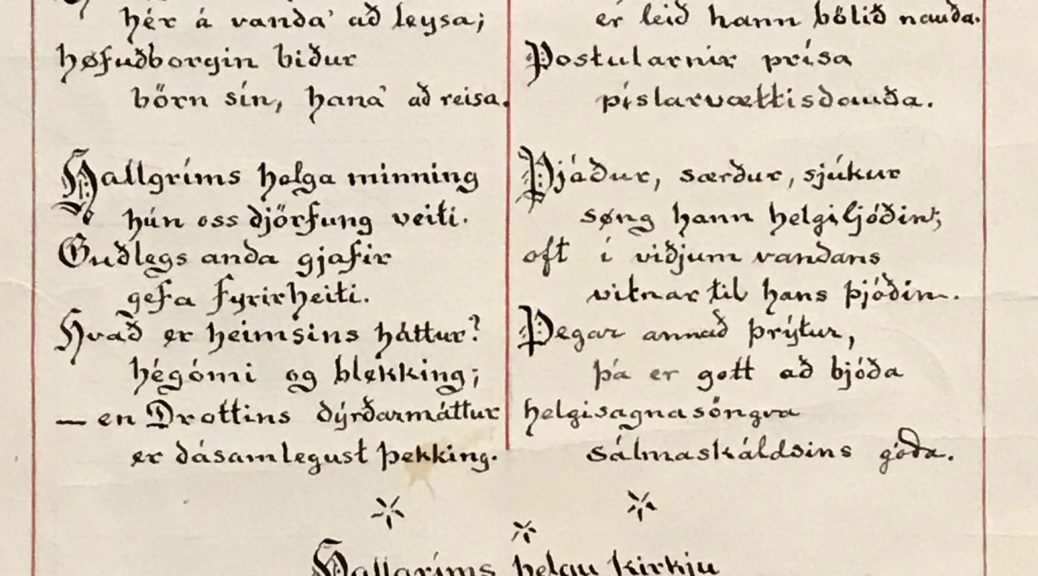 hér á vanda' að leysa;
høfuðborgin biður
börn sín, hana' að reisa.
Hallgríms helga minning
hún oss djörfung veiti.
Guðlegs anda gjafir
gefa fyrirheiti.
Hvað er heimsins háttur?
hégómi og blekking;
— en Drottins dýrðarmáttur
er dásamlegust þekking.
er leið hann bölið nauða.
Postularnir prísa
píslarvættisdauða.
Þjáður, særður, sjúkur
søng hann helgiljóðin;
oft í viðjum vandans
vitnar til hans þjóðin.
Þegar annað þrýtur,
þá er gott að bjóða
helgisagnasöngva
sálmaskáldsins góða.
Hallgríms helgu kirkju